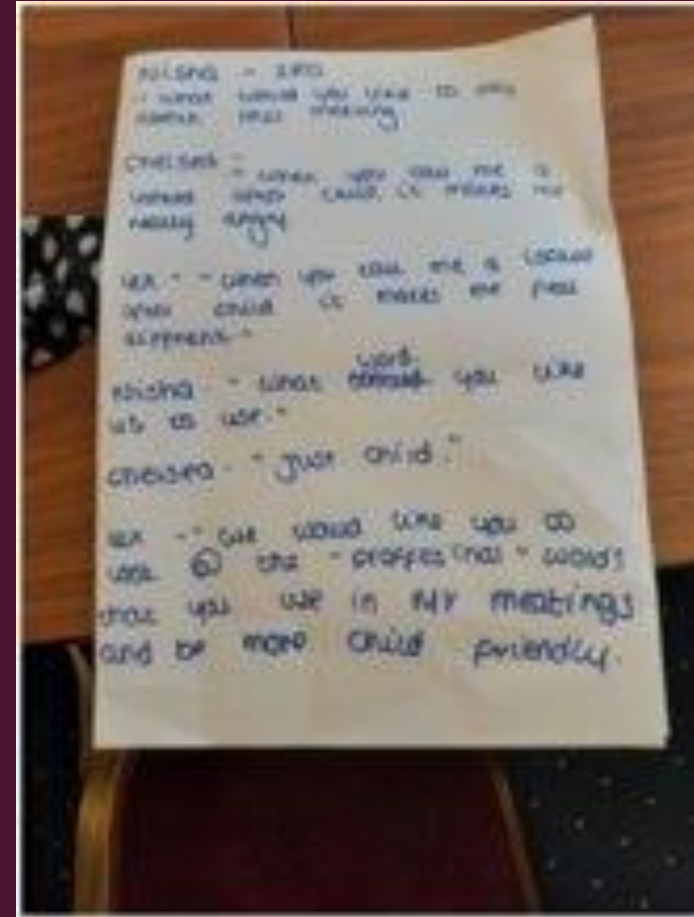 Nisha - IRO
- "what would you like to say
about this meeting
Chelsea -
"when you call me a
looked after child, it makes me
really angry
Lex - "when you call me a looked
after child it makes me feel
different."
word
Nisha - "what you like
us to use."
Chelsea - "Just child."
Lex - "we would like you to
look @ the "proffesinal" words
that you use in MY meetings
and be more child friendly.